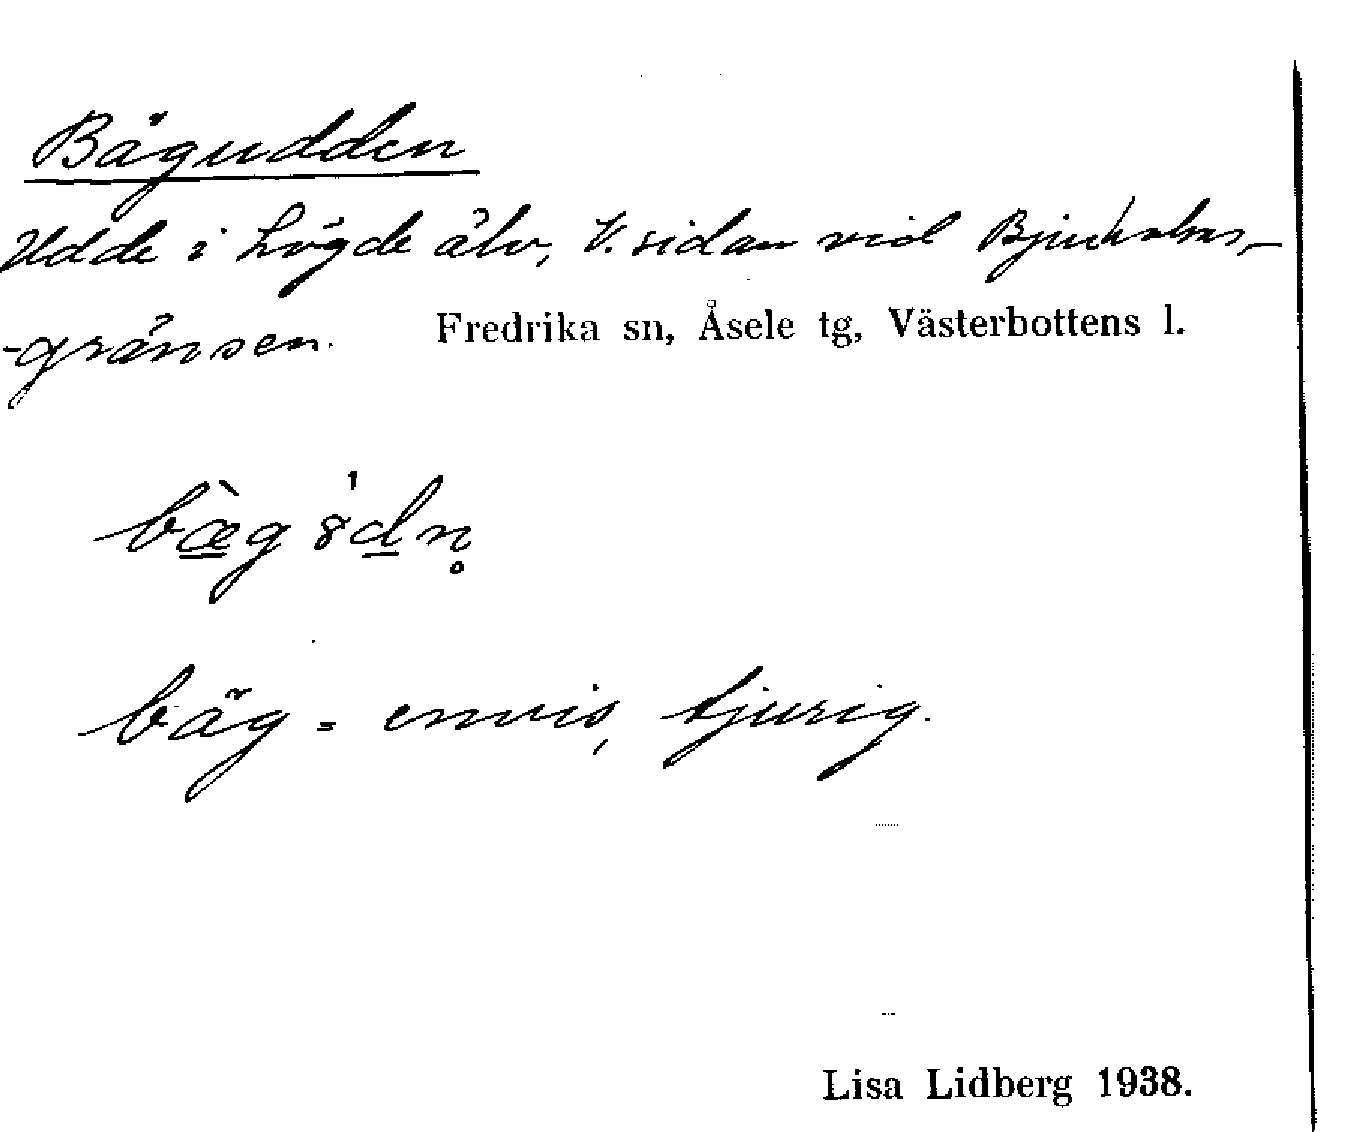 Bägudden
Udde i Lögde älv, V. sidan vid Bjurholms-
-gränsen. Fredrika sn, Åsele tg, Västerbottens l.
bæ̀g 8̍dn̥
bäg = envis, tjurig.
Lisa Lidberg 1938.